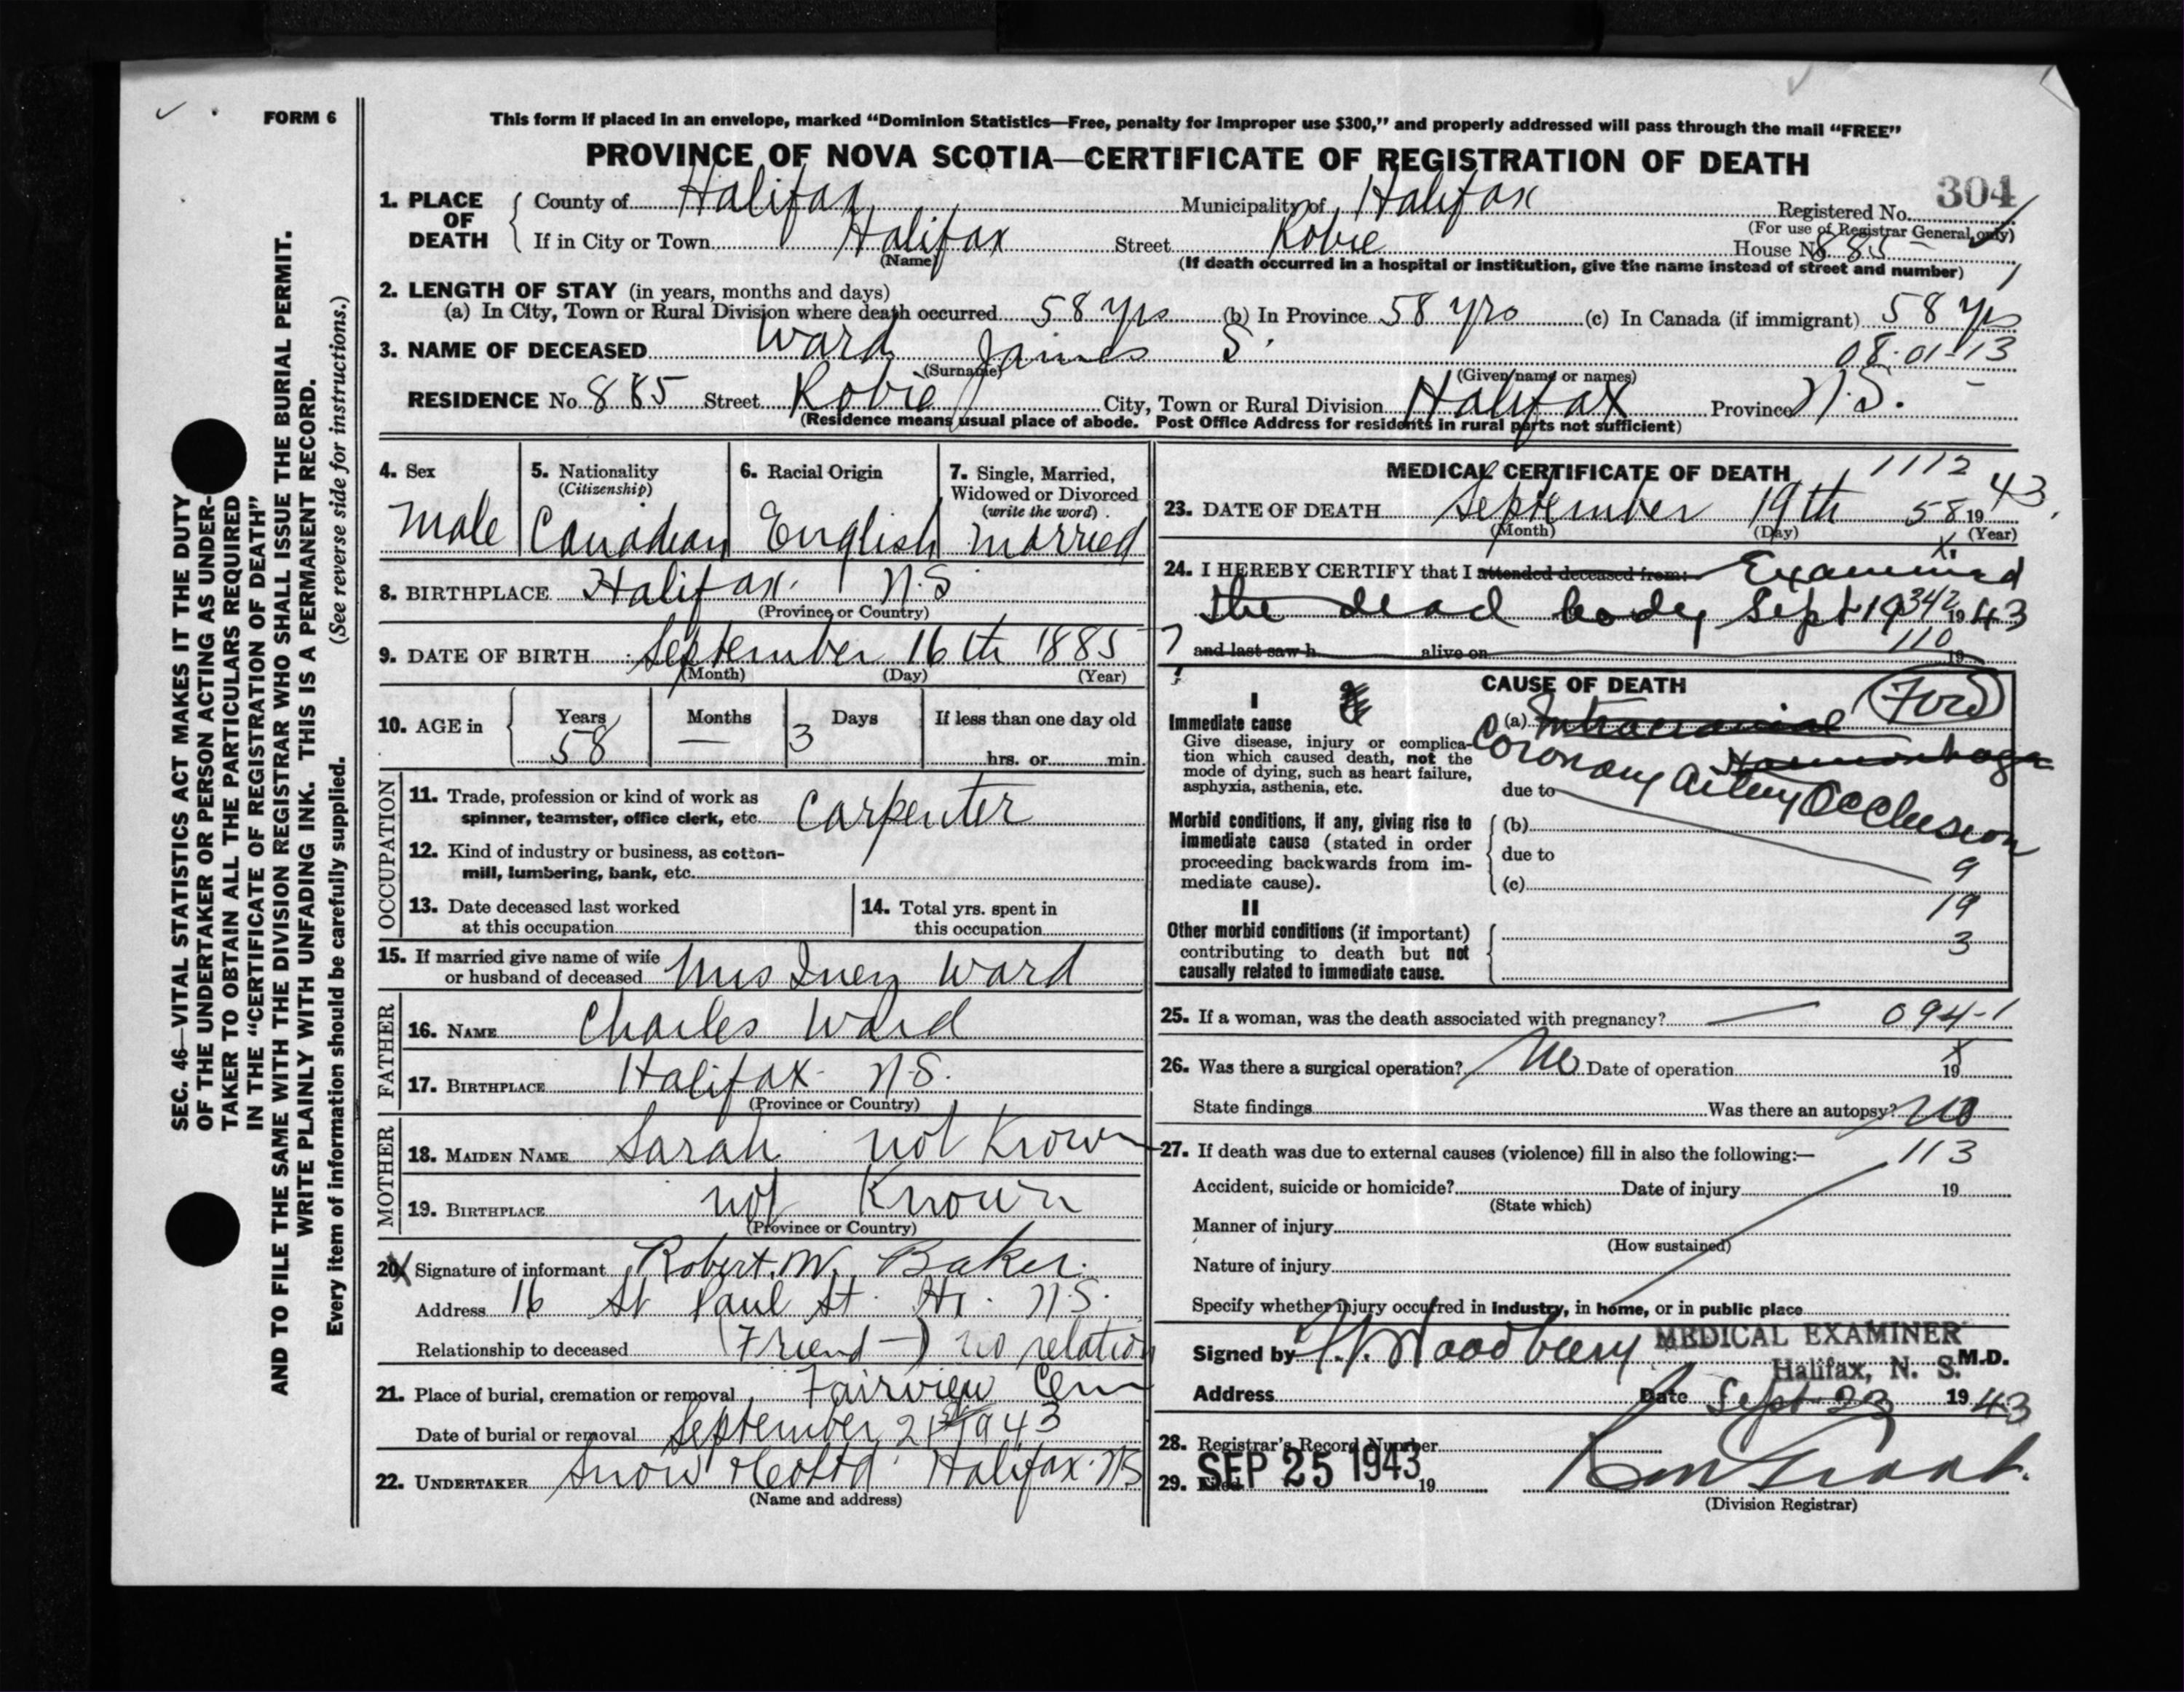 FORM 6
This form if placed in an envelope, marked “Dominion Statistics—Free, penalty for improper use $300,” and properly addressed will pass through the mail “FREE”
PROVINCE OF NOVA SCOTIA—CERTIFICATE OF REGISTRATION OF DEATH
304
1. PLACE OF DEATH
County of Halifax Municipality of Halifax Registered No.
(For use of Registrar General only)
If in City or Town Halifax Street Robie House No. 885
(Name)
(If death occurred in a hospital or institution, give the name instead of street and number)
2. LENGTH OF STAY (in years, months and days)
(a) In City, Town or Rural Division where death occurred 58 yrs (b) In Province 58 yrs (c) In Canada (if immigrant) 58 yrs
3. NAME OF DECEASED Ward James S. 08-01-13
(Surname) (Given name or names)
RESIDENCE No. 885 Street Robie City, Town or Rural Division Halifax Province N.S.
(Residence means usual place of abode. Post Office Address for residents in rural parts not sufficient)
4. Sex
Male
5. Nationality
(Citizenship)
Canadian
6. Racial Origin
English
7. Single, Married,
Widowed or Divorced
(write the word)
Married
8. BIRTHPLACE Halifax. N.S
(Province or Country)
9. DATE OF BIRTH September 16th 1885
(Month) (Day) (Year)
10. AGE in
Years Months Days If less than one day old
58 — 3 hrs. or min.
OCCUPATION
11. Trade, profession or kind of work as
spinner, teamster, office clerk, etc. Carpenter
12. Kind of industry or business, as cotton-
mill, lumbering, bank, etc.
13. Date deceased last worked
at this occupation
14. Total yrs. spent in
this occupation
15. If married give name of wife
or husband of deceased Mrs Inez Ward
FATHER
16. NAME Charles Ward
17. BIRTHPLACE Halifax N.S.
(Province or Country)
MOTHER
18. MAIDEN NAME Sarah not Known
19. BIRTHPLACE not Known
(Province or Country)
20. Signature of informant Robert. W. Baker.
Address 16 St Paul St. Hx. N.S.
Relationship to deceased (Friend—) no relation
21. Place of burial, cremation or removal Fairview Cem
Date of burial or removal September 21st 1943
22. UNDERTAKER Snow & Co Ltd Halifax. NS
(Name and address)
MEDICAL CERTIFICATE OF DEATH 1112
23. DATE OF DEATH September 19th 58 19 43.
(Month) (Day) (Year)
24. I HEREBY CERTIFY that I attended deceased from: Examined
the dead body Sept 19 342 19 43
and last saw h alive on 110 19
CAUSE OF DEATH
Ford
I
Immediate cause
Give disease, injury or complica-
tion which caused death, not the
mode of dying, such as heart failure,
asphyxia, asthenia, etc.
(a) Intracranial
Haemorrhage
Coronary Artery Occlusion
due to
Morbid conditions, if any, giving rise to
immediate cause (stated in order
proceeding backwards from im-
mediate cause).
(b)
due to
9
(c)
19
II
Other morbid conditions (if important)
contributing to death but not
causally related to immediate cause.
3
25. If a woman, was the death associated with pregnancy? — 094-1
26. Was there a surgical operation? No Date of operation 19
State findings Was there an autopsy? No
27. If death was due to external causes (violence) fill in also the following:— 113
Accident, suicide or homicide? Date of injury 19
(State which)
Manner of injury
(How sustained)
Nature of injury
Specify whether injury occurred in industry, in home, or in public place
Signed by Woodbury MEDICAL EXAMINER
Halifax, N. S. M.D.
Address Date Sept 23 19 43
28. Registrar's Record Number
29. Filed SEP 25 1943 19
(Division Registrar)
SEC. 46—VITAL STATISTICS ACT MAKES IT THE DUTY
OF THE UNDERTAKER OR PERSON ACTING AS UNDER-
TAKER TO OBTAIN ALL THE PARTICULARS REQUIRED
IN THE “CERTIFICATE OF REGISTRATION OF DEATH”
AND TO FILE THE SAME WITH THE DIVISION REGISTRAR WHO SHALL ISSUE THE BURIAL PERMIT.
WRITE PLAINLY WITH UNFADING INK. THIS IS A PERMANENT RECORD.
Every item of information should be carefully supplied. (See reverse side for instructions.)